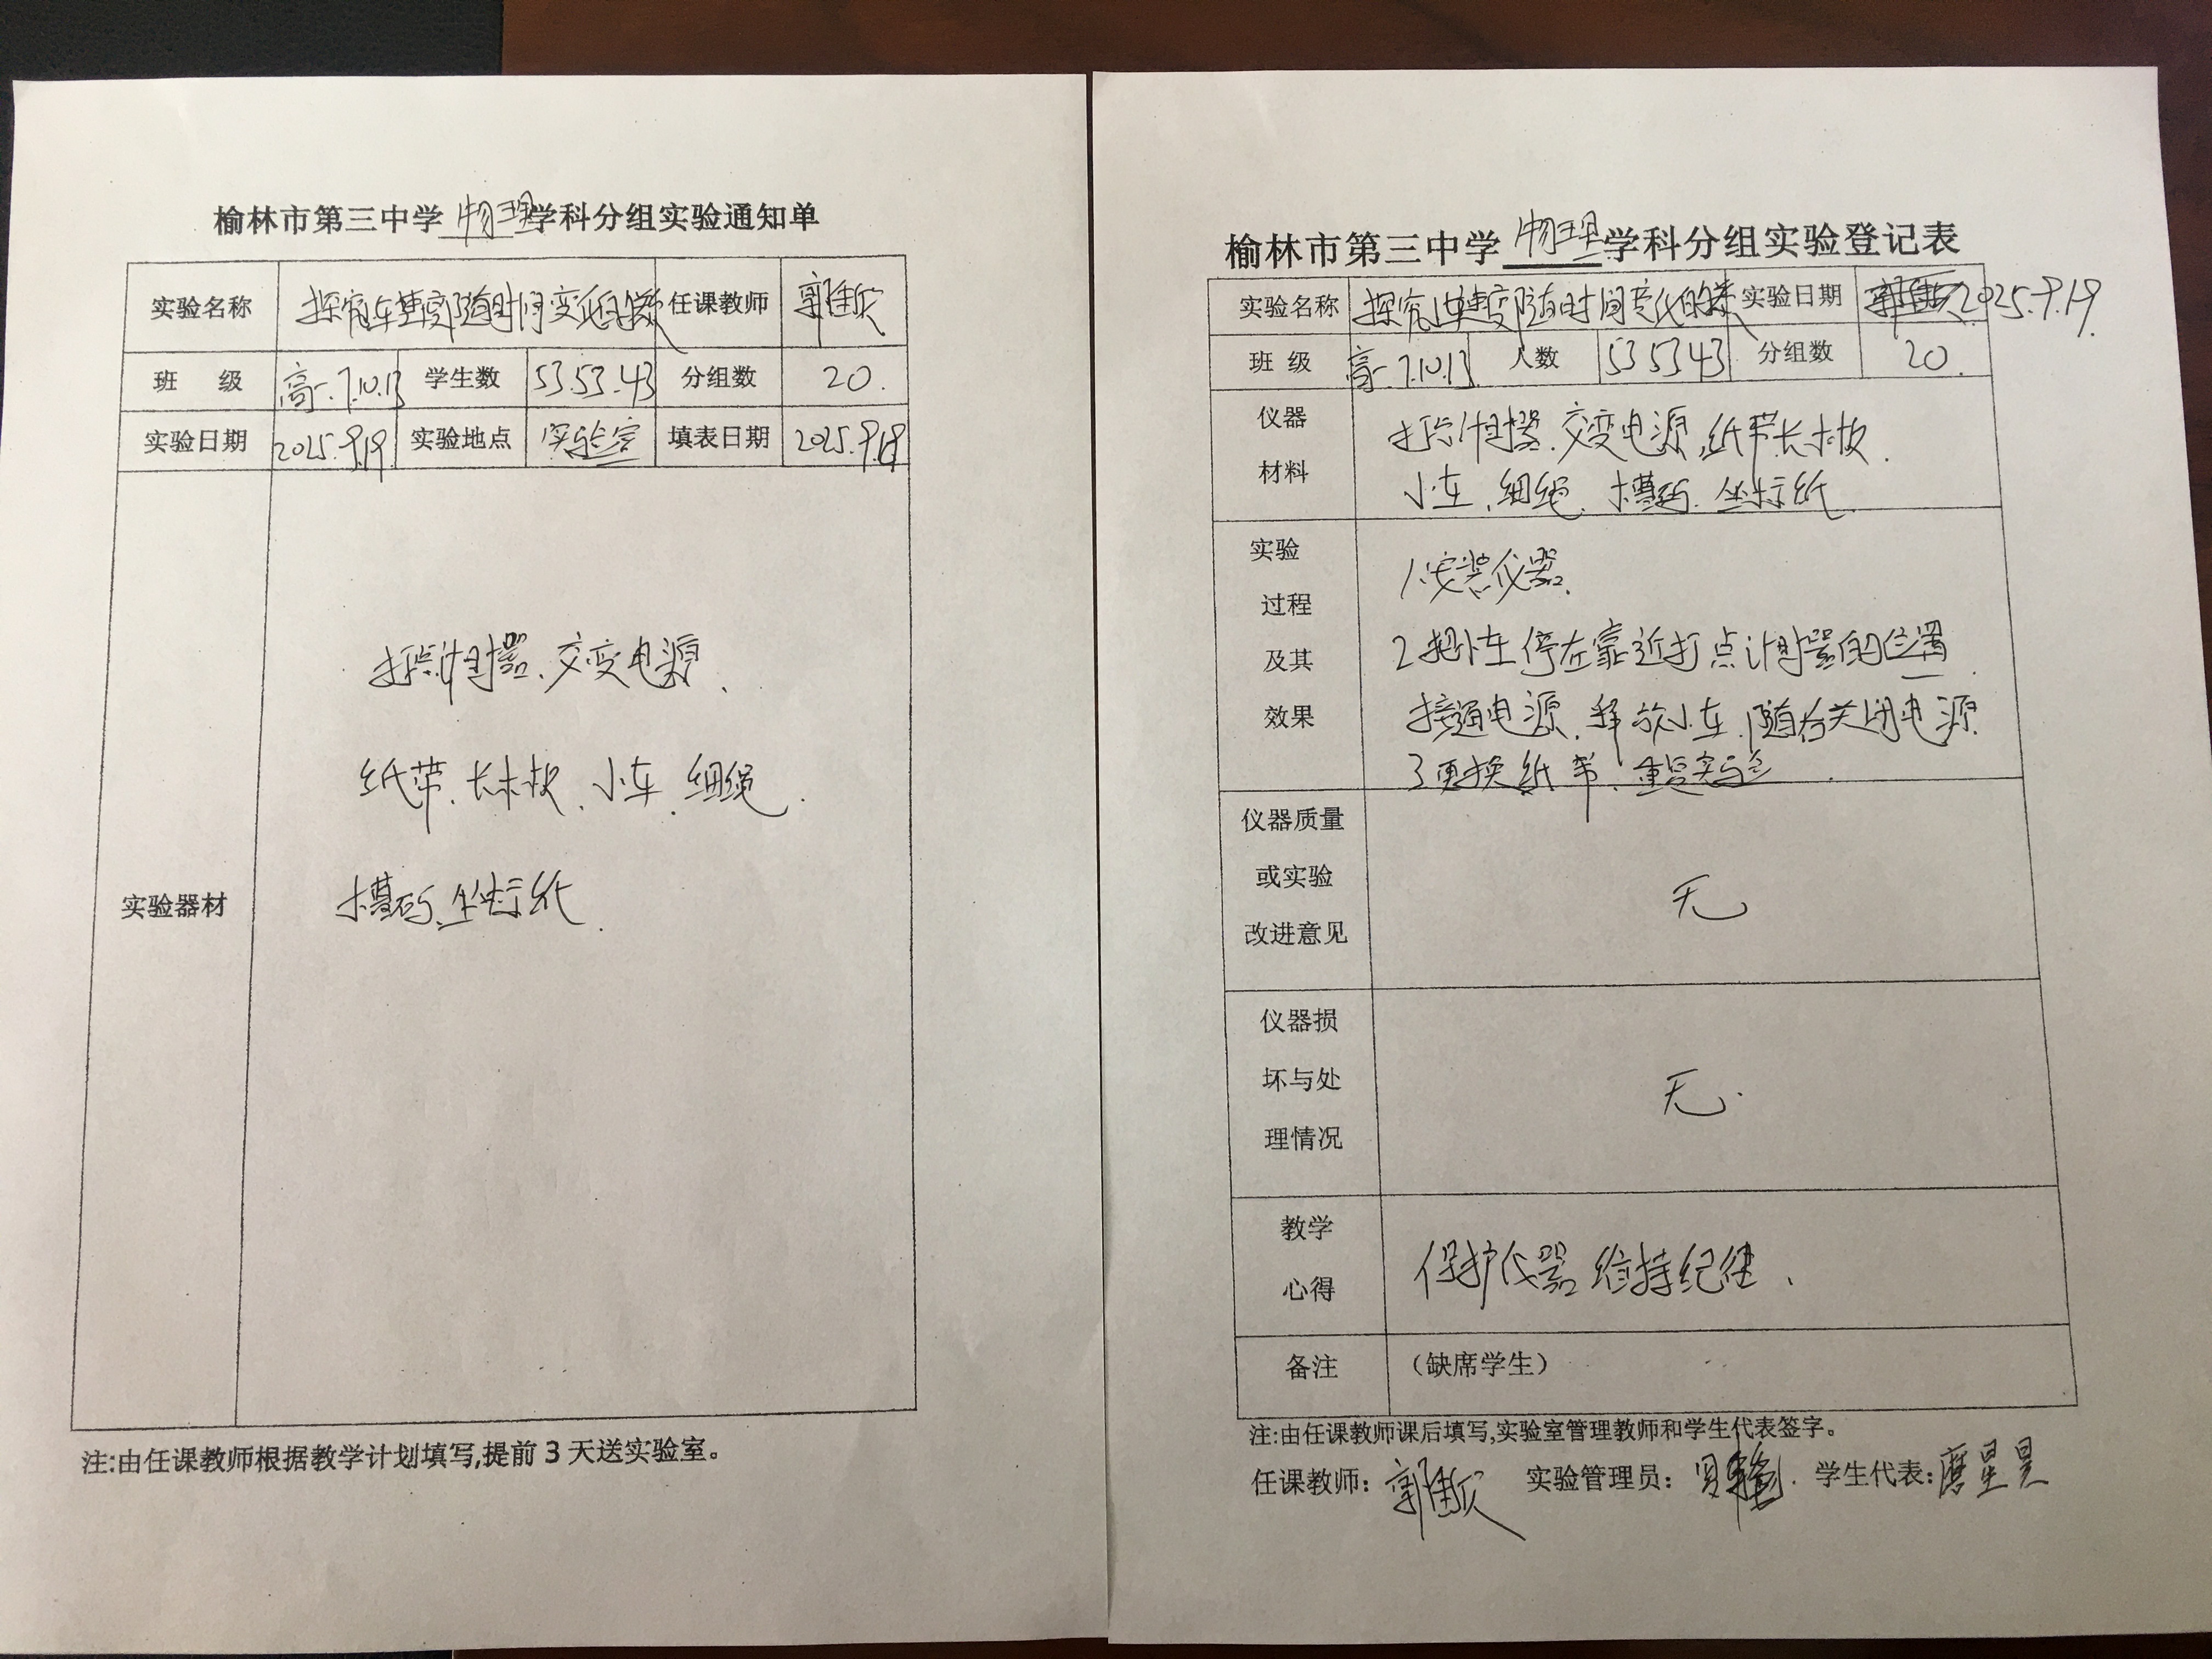 榆林市第三中学 物理 学科分组实验通知单
实验名称 探究小车速度随时间变化的规律 任课教师 郭佳欣
班 级 高一7.10.13 学生数 53.53.43 分组数 20.
实验日期 2025.9.19 实验地点 实验室 填表日期 2025.9.19
实验器材
打点计时器、交变电源、
纸带、长木板、小车、细绳、
槽码、坐标纸.
注:由任课教师根据教学计划填写,提前 3 天送实验室。
榆林市第三中学 物理 学科分组实验登记表
实验名称 探究小车速度随时间变化的规律 实验日期 2025.9.19.
班 级 高一7.10.13 人数 53 53 43 分组数 20.
仪器 打点计时器、交变电源、纸带、长木板、
材料 小车、细绳、槽码、坐标纸.
实验 1.安装仪器.
过程
及其 2.把小车停在靠近打点计时器的位置.
效果 接通电源、释放小车、随后关闭电源.
3更换纸带、重复实验.
仪器质量
或实验 无
改进意见
仪器损
坏与处 无.
理情况
教学
心得 保护仪器 维持纪律、
备注 （缺席学生）
注:由任课教师课后填写,实验室管理教师和学生代表签字。
任课教师: 郭佳欣 实验管理员: 学生代表: 星昊